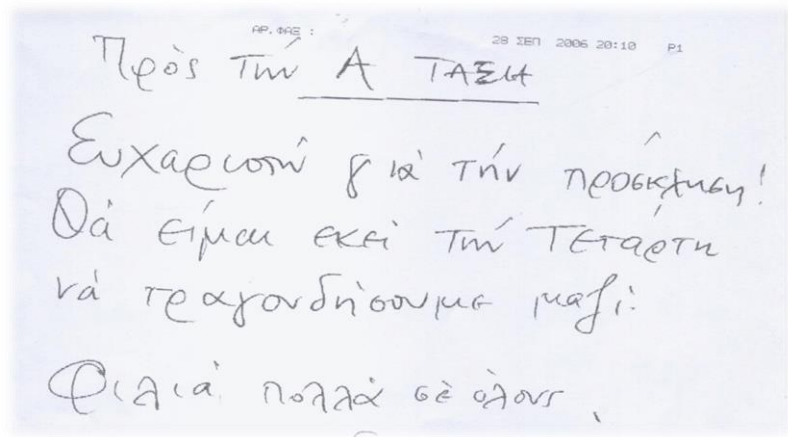 ΑΡ.ΦΑΞ : 28 ΣΕΠ 2006 20:10 P1
Πρὸς τήν Α ΤΑΞΗ
Ευχαριστώ γιὰ τήν πρόσκληση!
Θὰ είμαι εκεί τήν Τετάρτη
νά τραγουδήσουμε μαζί.
Φιλιά πολλὰ σὲ όλους.